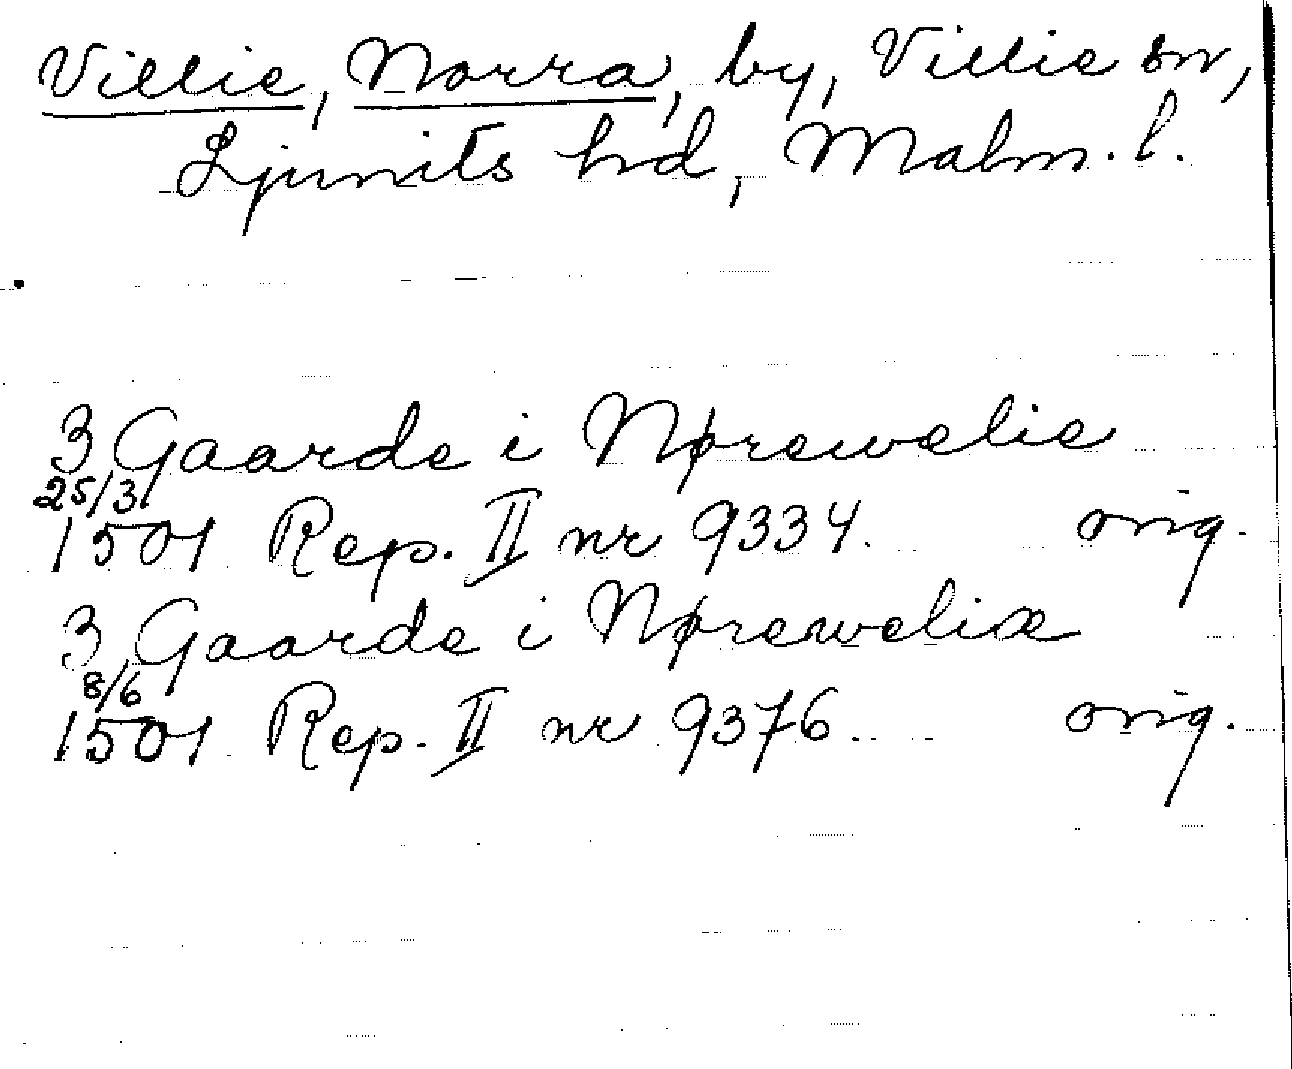 Villie, Norra, by, Villie sn,
Ljunits hd, Malm. l.
3 Gaarde i Nørewelie
25/3
1501 Rep. II nr 9334. orig.
3 Gaarde i Nøreweliæ
8/6
1501 Rep. II nr 9376. orig.